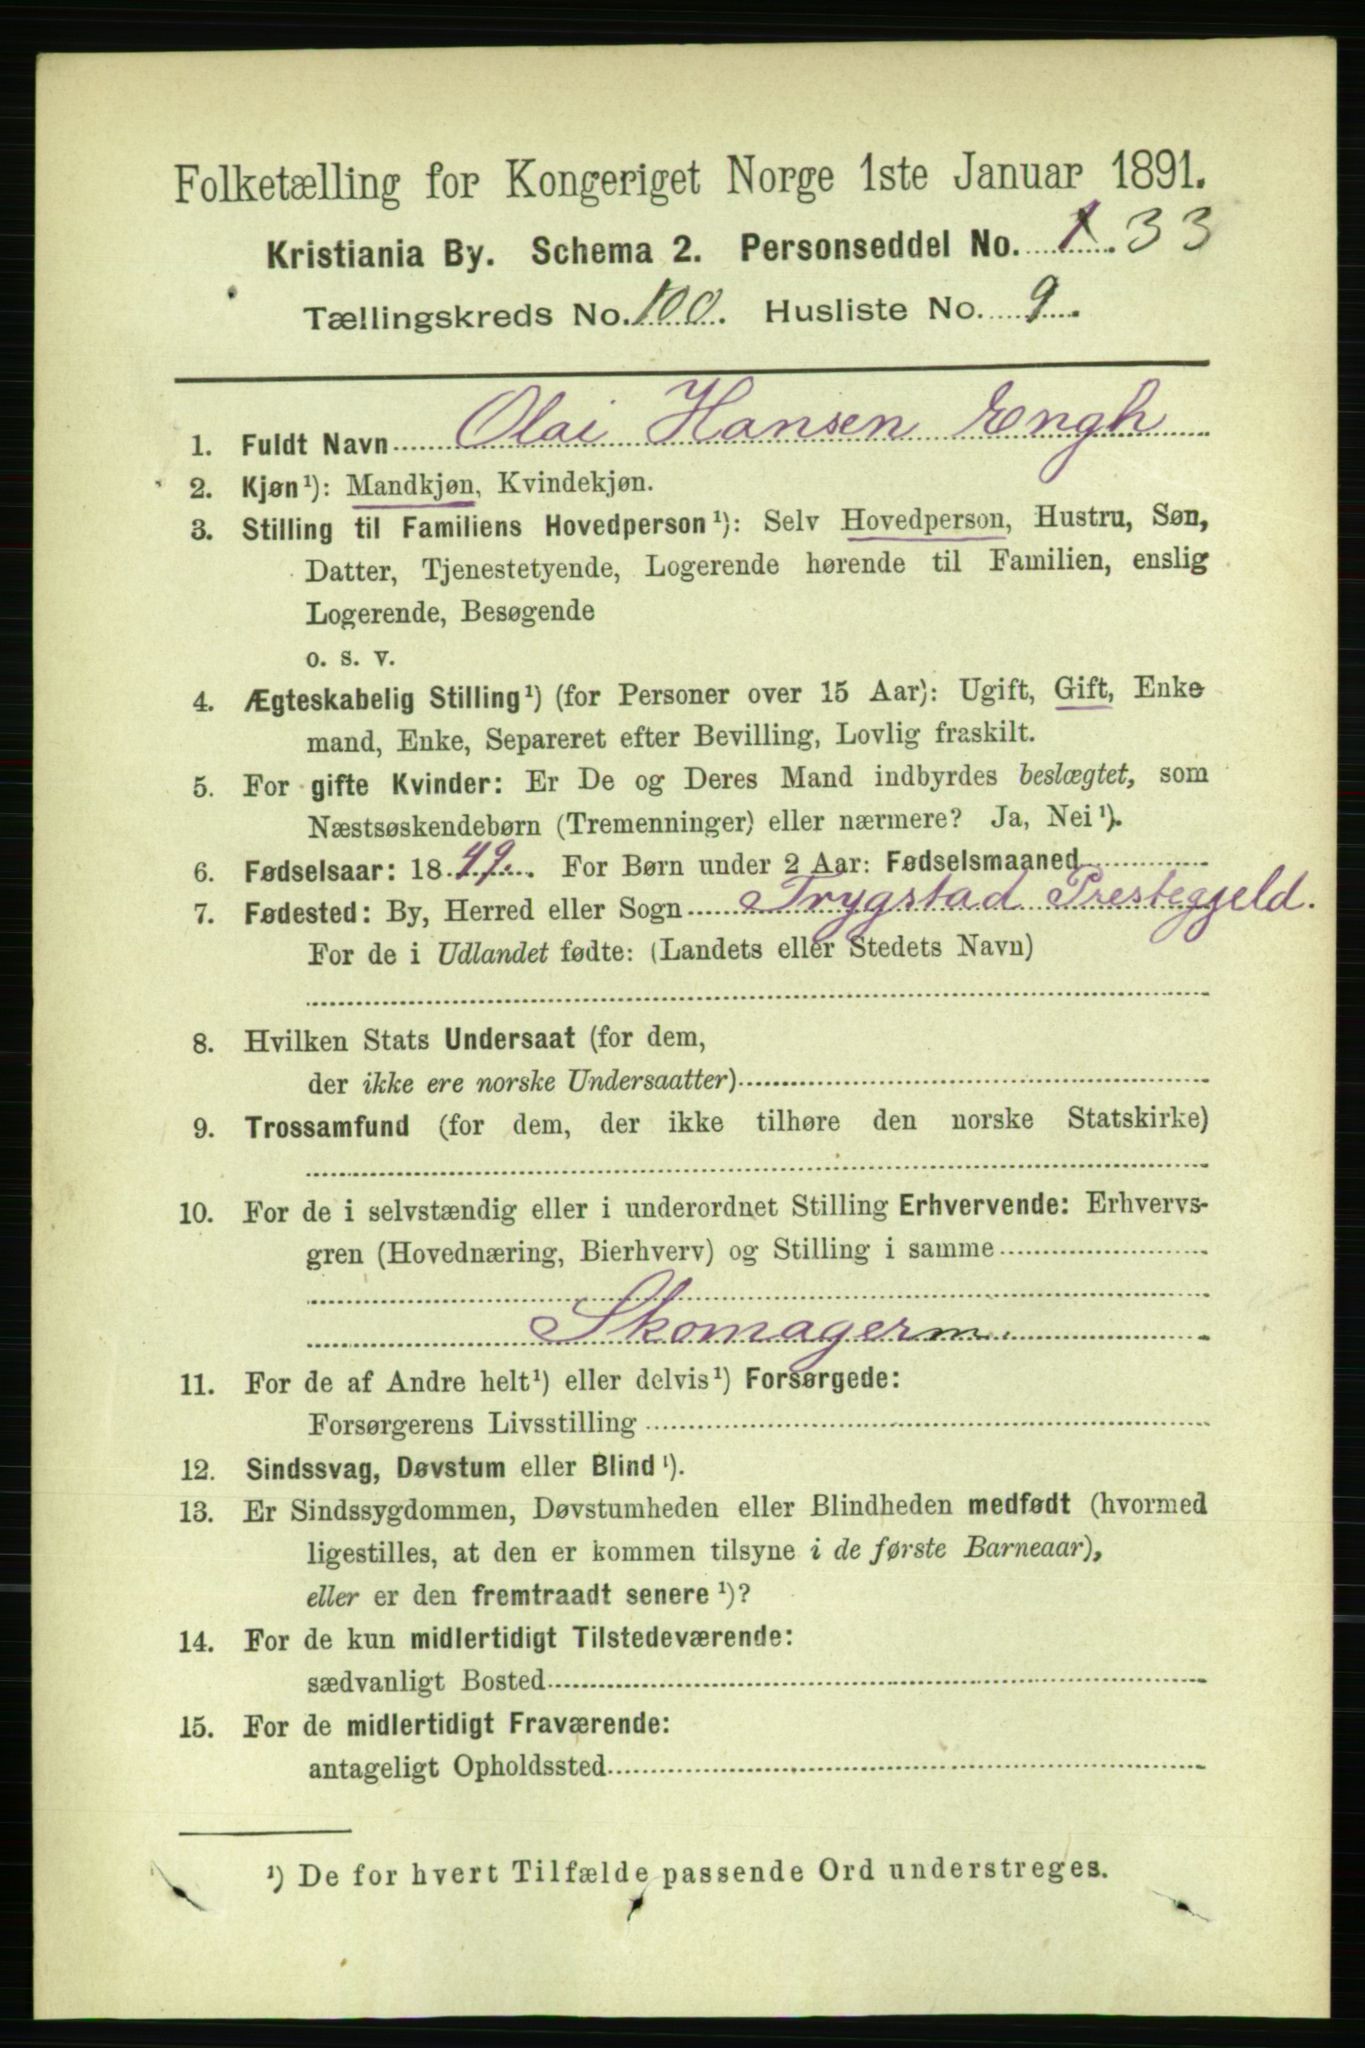 Folketælling for Kongeriget Norge 1ste Januar 1891.
Kristiania By. Schema 2. Personseddel No. 1. 33
Tællingskreds No. 100. Husliste No. 9.
1. Fuldt Navn Olai Hansen Engh
2. Kjøn¹): Mandkjøn, Kvindekjøn.
3. Stilling til Familiens Hovedperson¹): Selv Hovedperson, Hustru, Søn,
Datter, Tjenestetyende, Logerende hørende til Familien, enslig
Logerende, Besøgende
o. s. v.
4. Ægteskabelig Stilling¹) (for Personer over 15 Aar): Ugift, Gift, Enke
mand, Enke, Separeret efter Bevilling, Lovlig fraskilt.
5. For gifte Kvinder: Er De og Deres Mand indbyrdes beslægtet, som
Næstsøskendebørn (Tremenninger) eller nærmere? Ja, Nei¹).
6. Fødselsaar: 1849. For Børn under 2 Aar: Fødselsmaaned
7. Fødested: By, Herred eller Sogn Trygstad Prestegjeld.
For de i Udlandet fødte: (Landets eller Stedets Navn)
8. Hvilken Stats Undersaat (for dem,
der ikke ere norske Undersaatter)
9. Trossamfund (for dem, der ikke tilhøre den norske Statskirke)
10. For de i selvstændig eller i underordnet Stilling Erhvervende: Erhvervs-
gren (Hovednæring, Bierhverv) og Stilling i samme
Skomagerm.
11. For de af Andre helt¹) eller delvis¹) Forsørgede:
Forsørgerens Livsstilling
12. Sindssvag, Døvstum eller Blind¹).
13. Er Sindssygdommen, Døvstumheden eller Blindheden medfødt (hvormed
ligestilles, at den er kommen tilsyne i de første Barneaar),
eller er den fremtraadt senere¹)?
14. For de kun midlertidigt Tilstedeværende:
sædvanligt Bosted
15. For de midlertidigt Fraværende:
antageligt Opholdssted
¹) De for hvert Tilfælde passende Ord understreges.